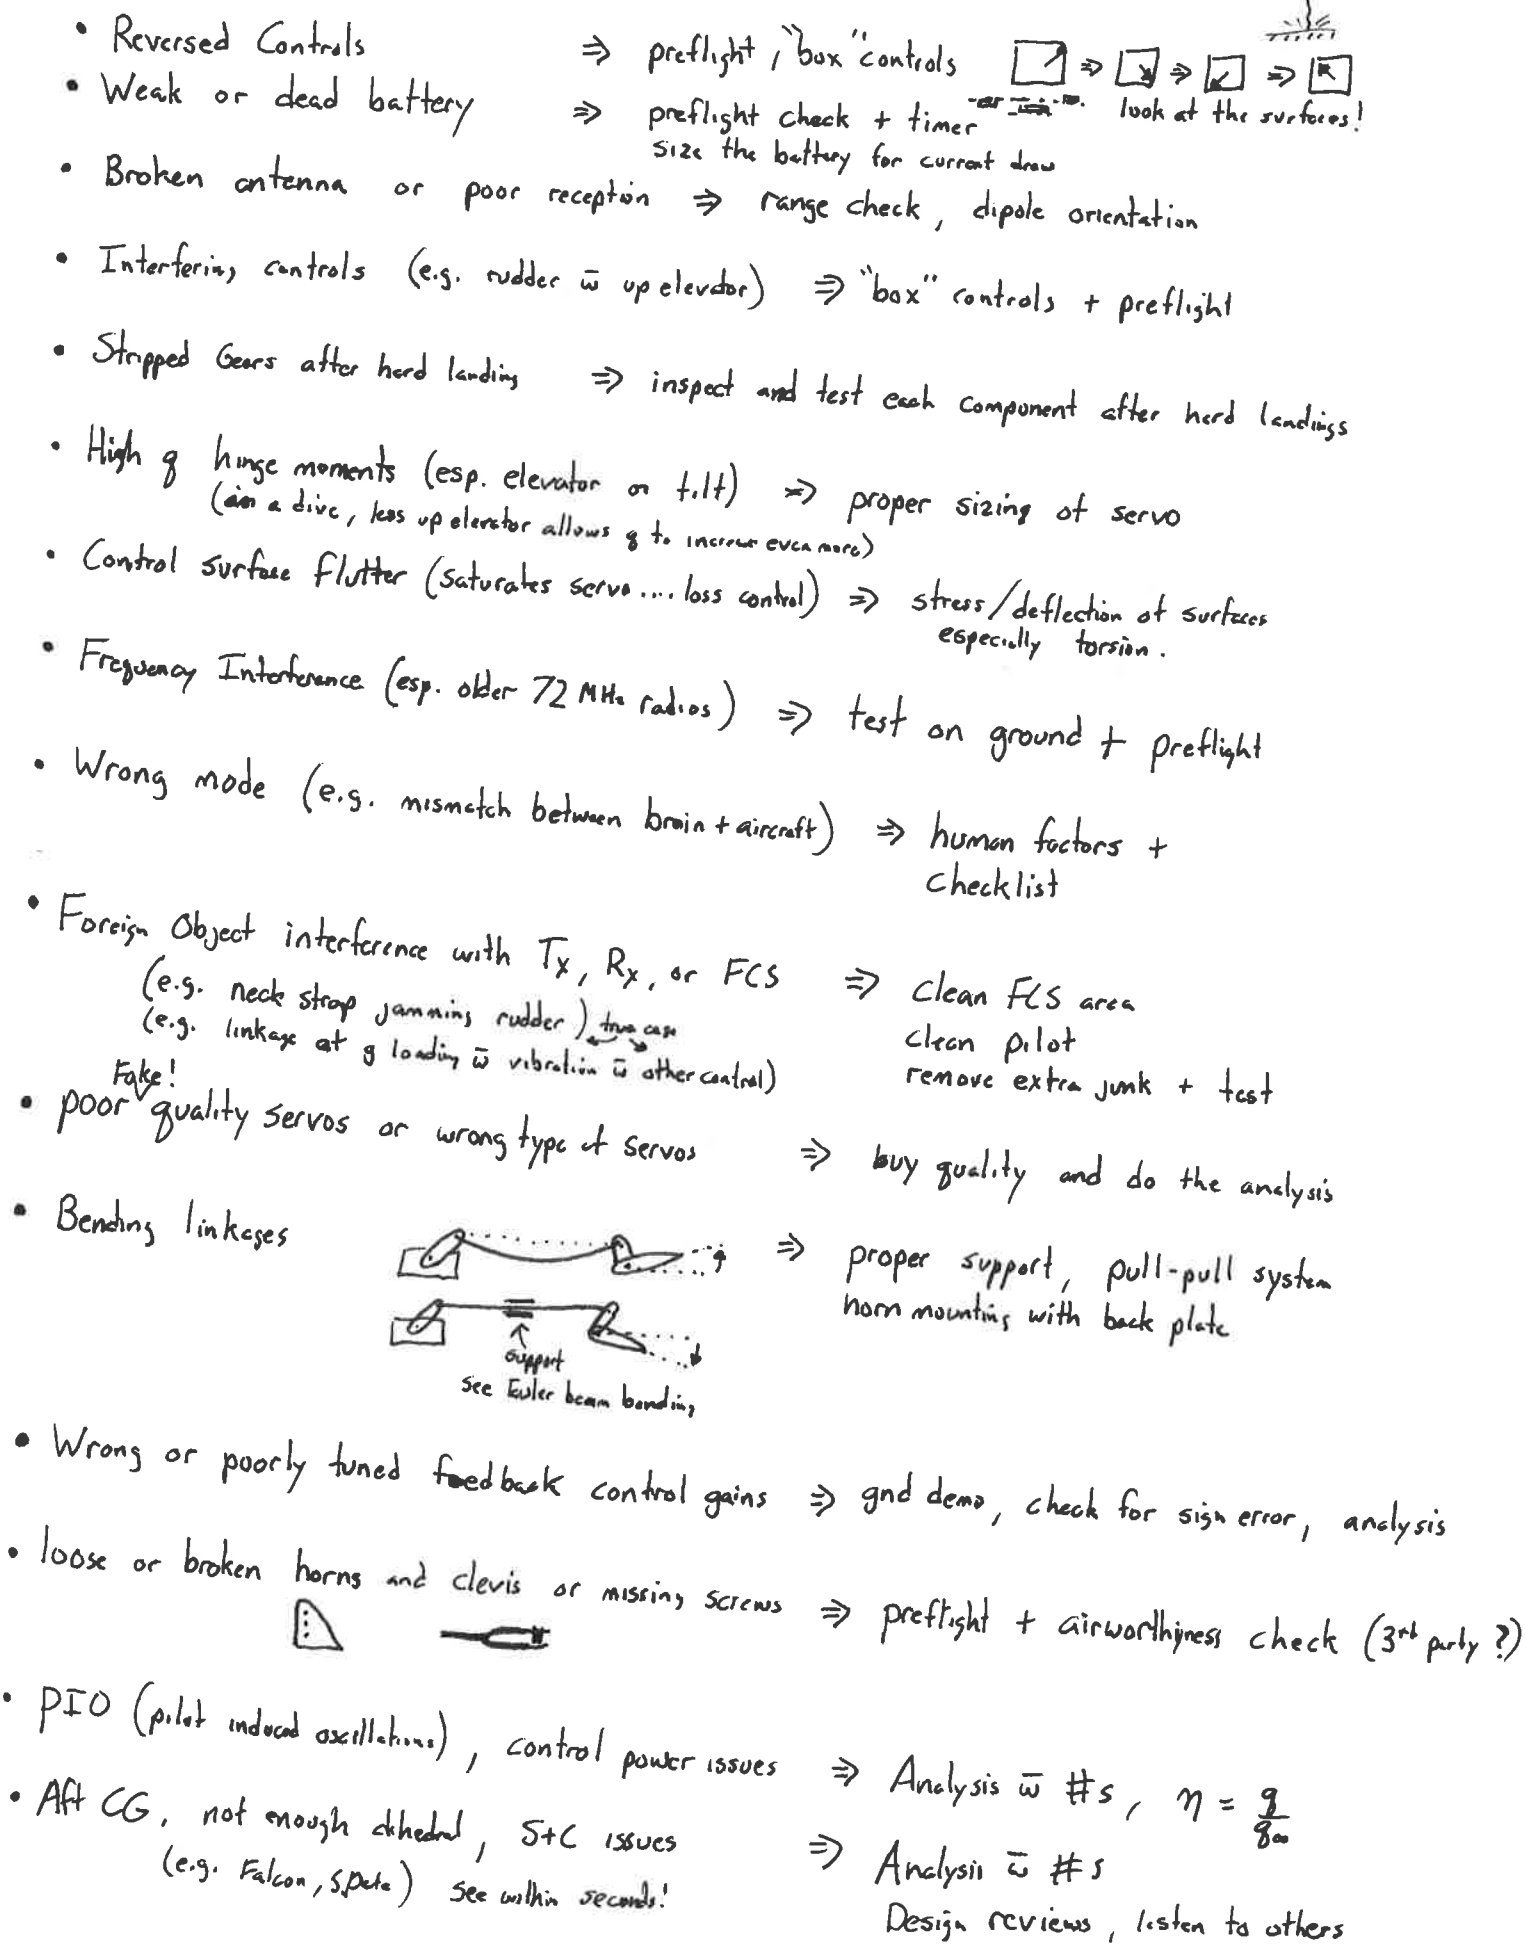 • Reversed Controls ⇒ preflight, "box" controls ⇒ ⇒ ⇒
look at the surfaces!
• Weak or dead battery ⇒ preflight check + timer
size the battery for current draw
• Broken antenna or poor reception ⇒ range check, dipole orientation
• Interfering controls (e.g. rudder w̄ up elevator) ⇒ "box" controls + preflight
• Stripped Gears after hard landing ⇒ inspect and test each component after hard landings
• High q hinge moments (esp. elevator or tilt) ⇒ proper sizing of servo
(in a dive, less up elevator allows q to increase even more)
• Control surface flutter (saturates servo .... loss control) ⇒ stress/deflection of surfaces
especially torsion.
• Frequency Interference (esp. older 72 MHz radios) ⇒ test on ground + preflight
• Wrong mode (e.g. mismatch between brain + aircraft) ⇒ human factors +
checklist
• Foreign Object interference with Tx, Rx, or FCS ⇒ clean FCS area
(e.g. neck strap jamming rudder) true case
clean pilot
(e.g. linkage at g loading w̄ vibration w̄ other control)
remove extra junk + test
Fake!
• poor quality servos or wrong type of servos ⇒ buy quality and do the analysis
• Bending linkages ⇒ proper support, pull-pull system
horn mounting with back plate
support
see Euler beam bending
• Wrong or poorly tuned feedback control gains ⇒ gnd demo, check for sign error, analysis
• loose or broken horns and clevis or missing screws ⇒ preflight + airworthyness check (3rd party?)
• PIO (pilot induced oscillations), control power issues ⇒ Analysis w̄ #s, η = q/q∞
• Aft CG, not enough dihedral, S+C issues ⇒ Analysis w̄ #s
(e.g. Falcon, ) see within seconds!
Design reviews, listen to others